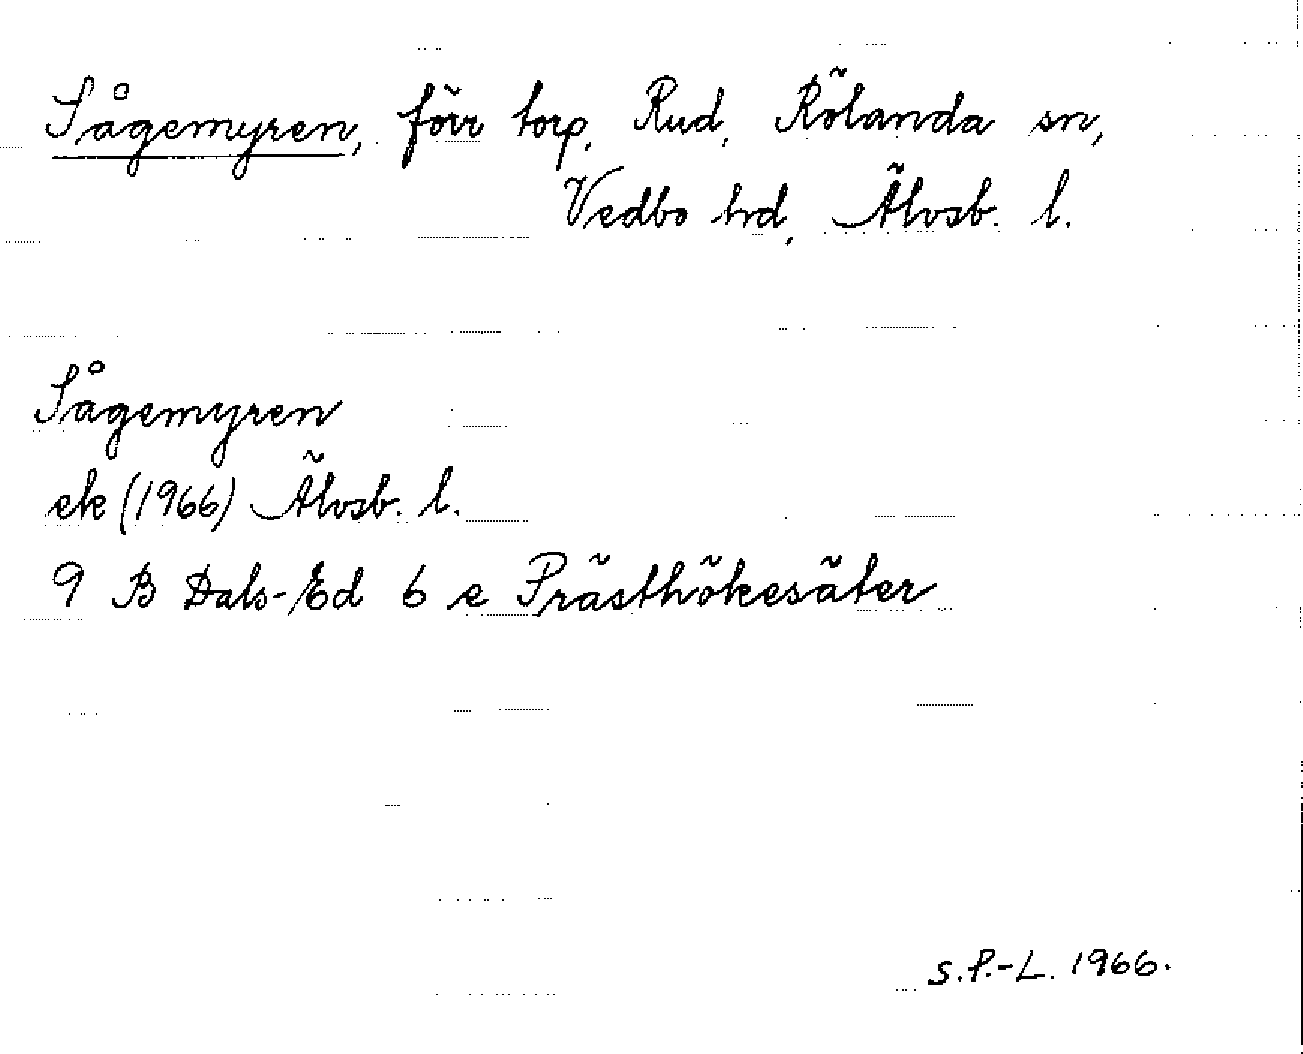 Sågemyren, förr torp, Rud, Rölanda sn,
Vedbo hrd, Älvsb. l.
Sågemyren
ek (1966) Älvsb. l.
9 B Dals-Ed 6 e Prästhökesäter
S.P.-L. 1966.